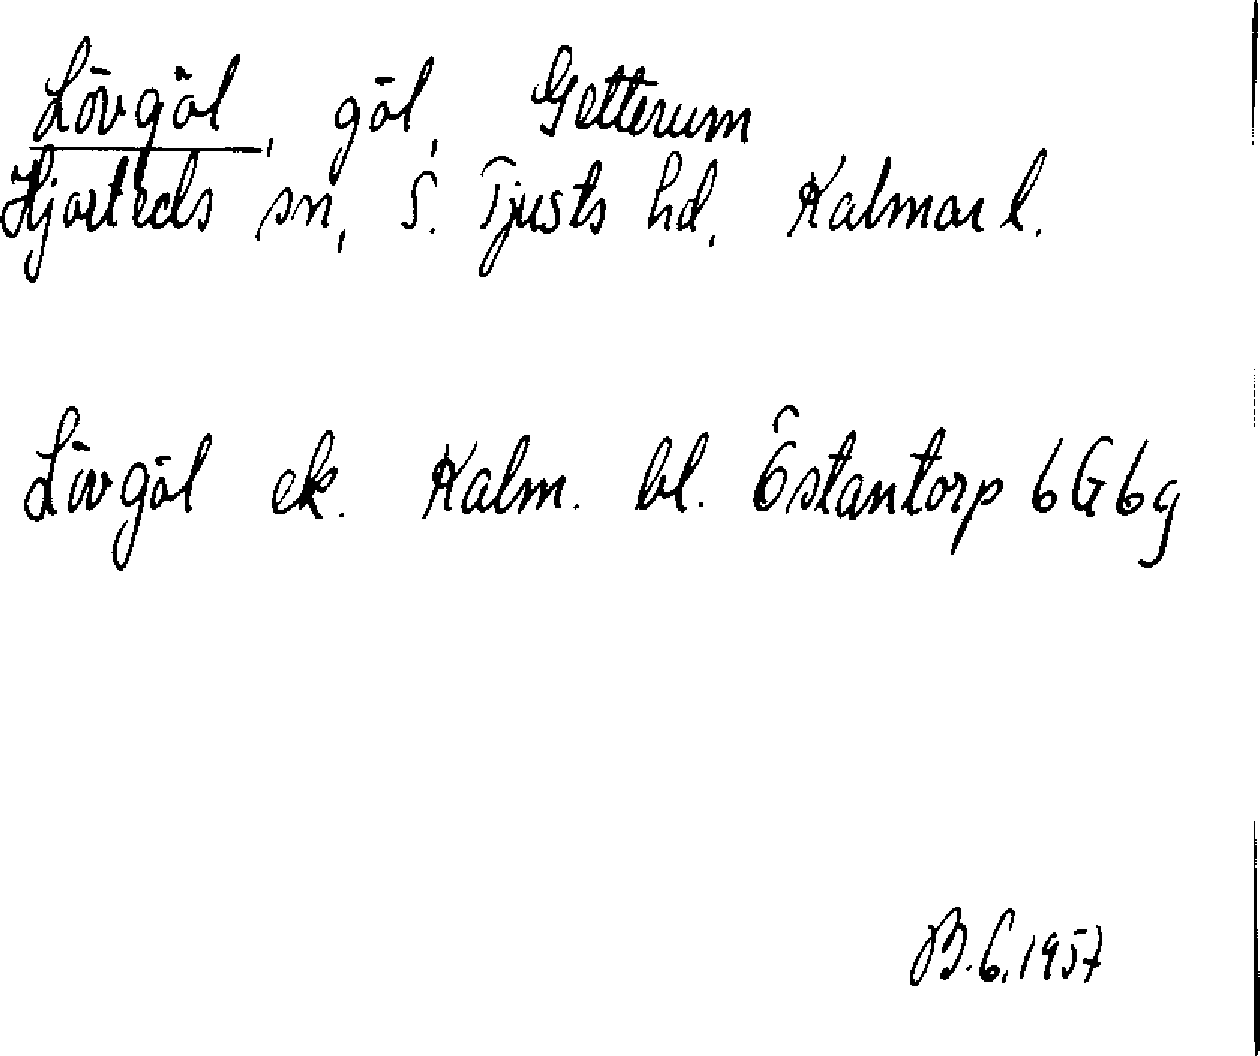 Lövgöl, göl, Getterum
Hjorteds sn, S. Tjusts hd. Kalmar l.
Lövgöl ek. Kalm. bl. Östantorp 6G6g
B.G. 1957